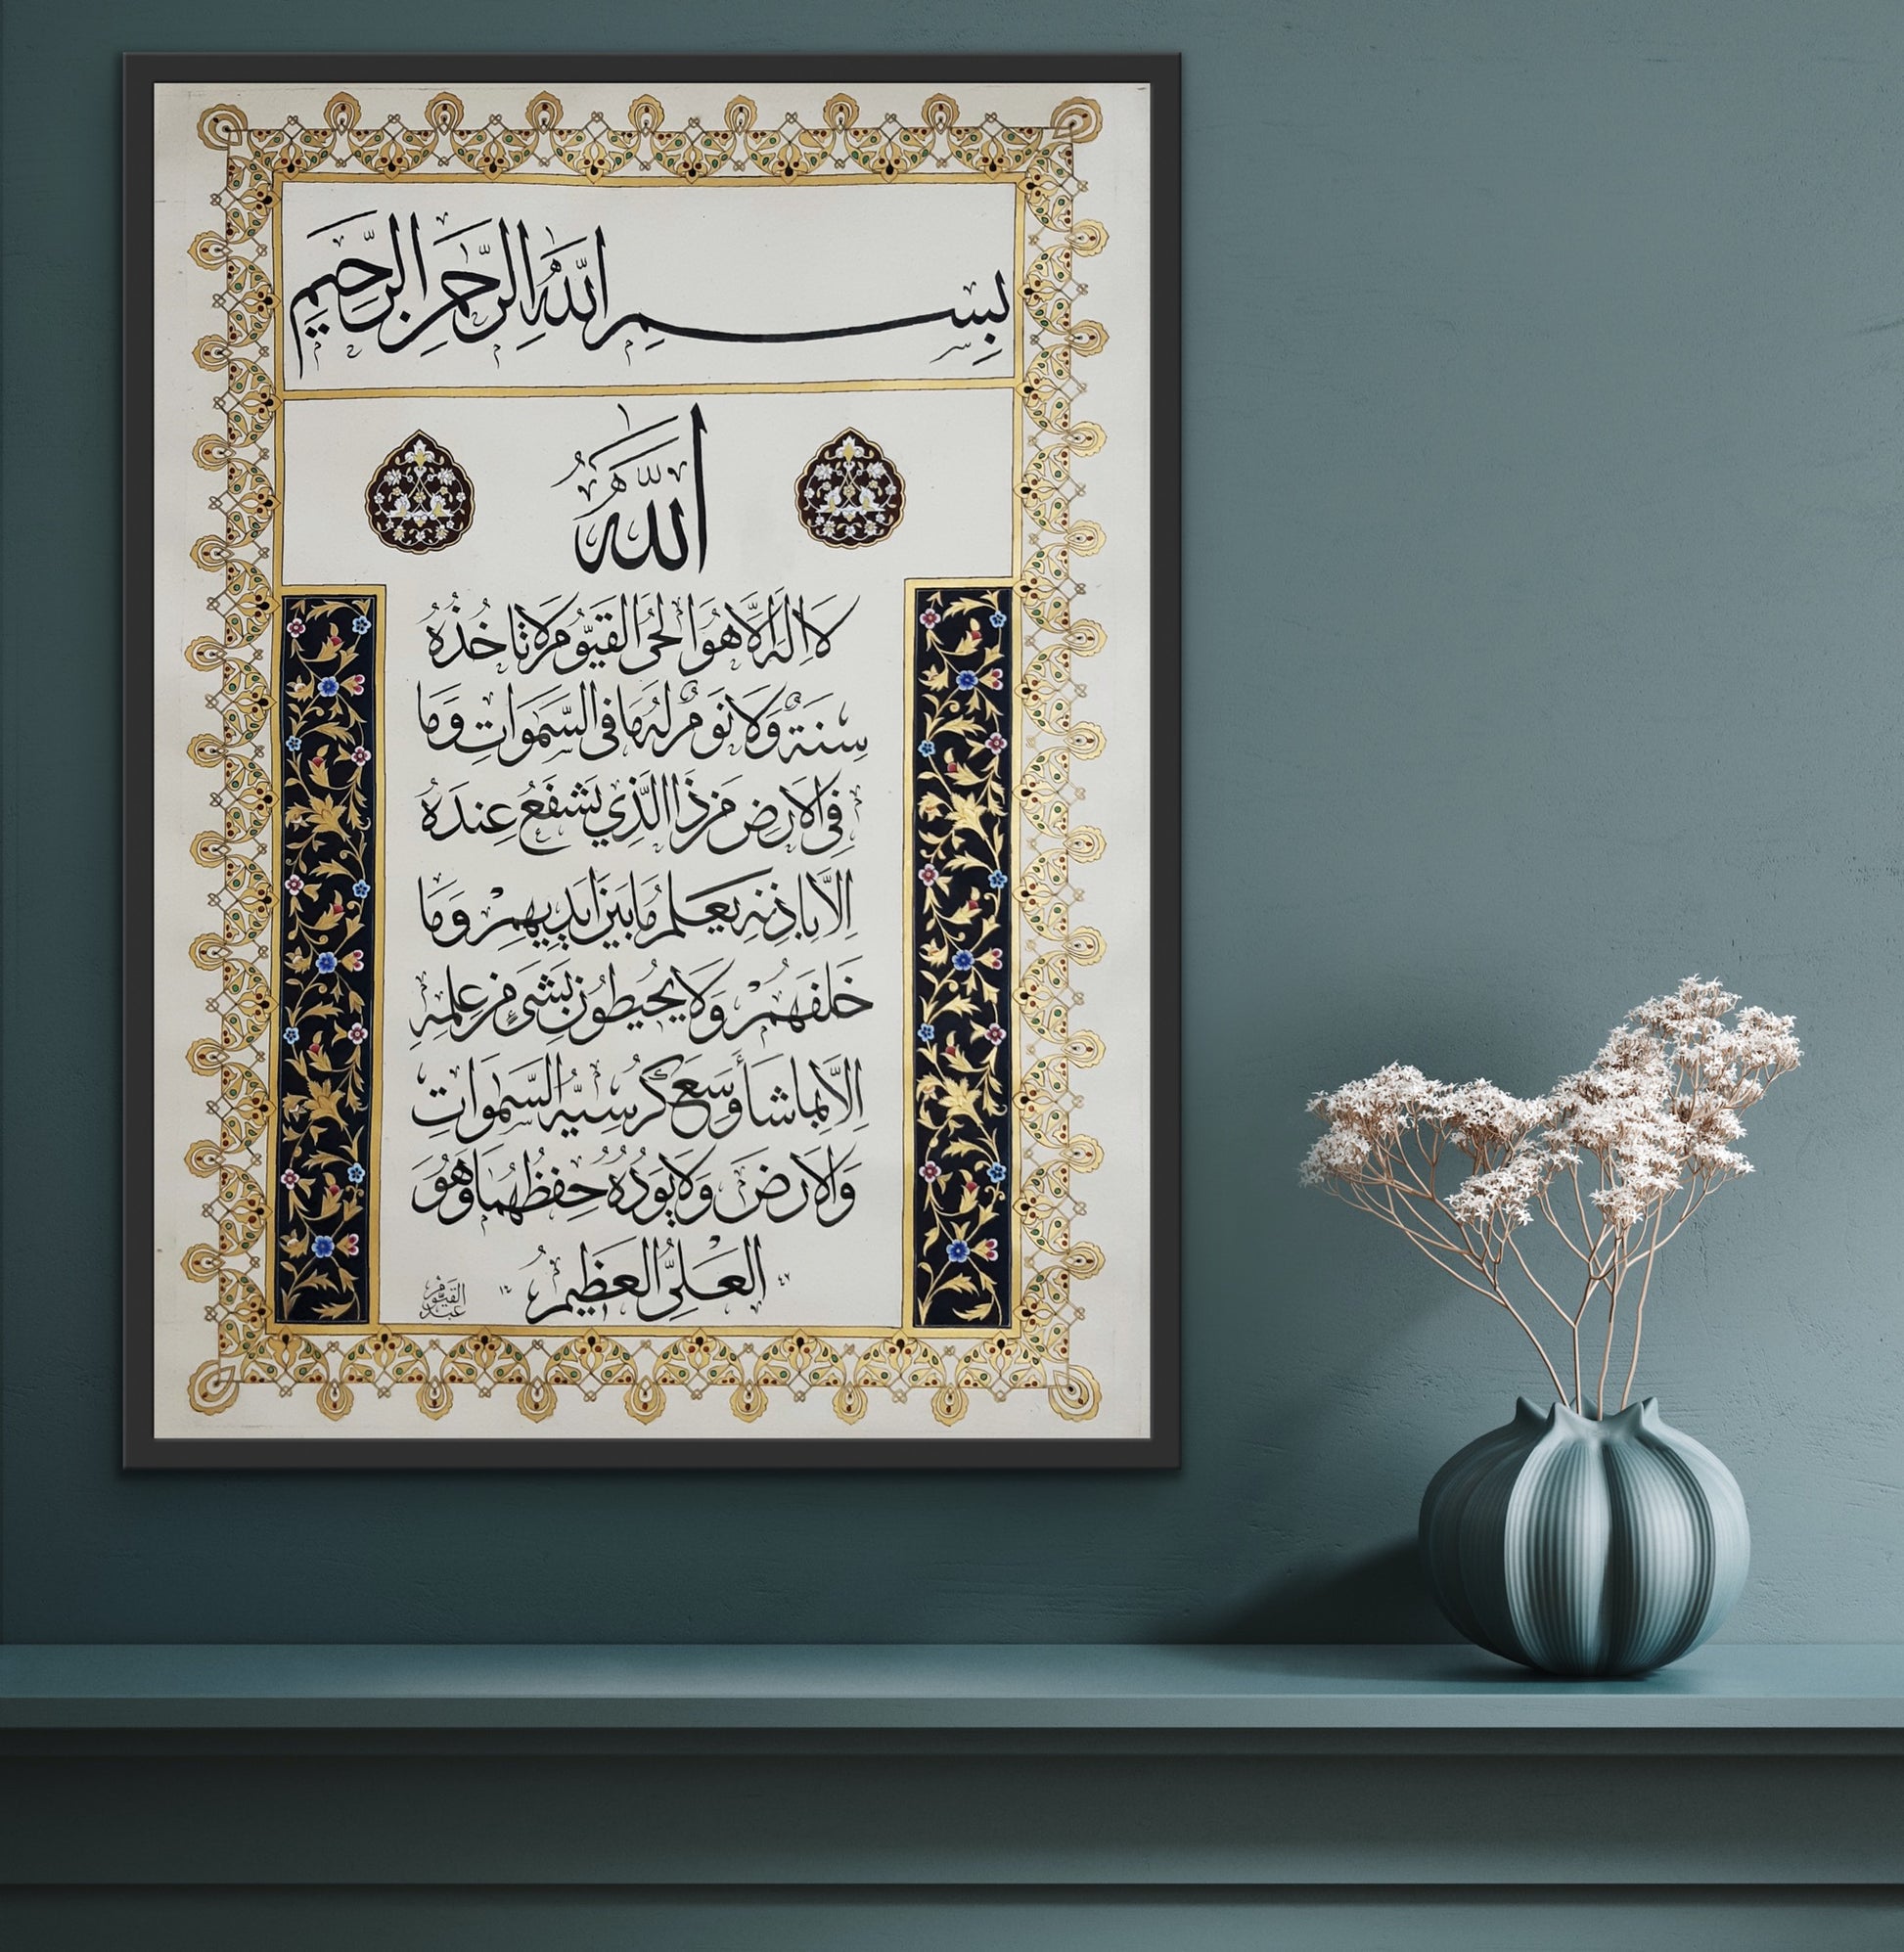 بِسْمِ اللّٰهِ الرَّحْمٰنِ الرَّحِيْمِ
اَللّٰهُ
لَا اِلٰهَ اِلَّا هُوَ الْحَيُّ الْقَيُّوْمُ لَا تَاْخُذُهُ
سِنَةٌ وَلَا نَوْمٌ لَهُ مَا فِي السَّمٰوَاتِ وَمَا
فِي الْاَرْضِ مَنْ ذَا الَّذِي يَشْفَعُ عِنْدَهُ
اِلَّا بِاِذْنِهِ يَعْلَمُ مَا بَيْنَ اَيْدِيْهِمْ وَمَا
خَلْفَهُمْ وَلَا يُحِيْطُوْنَ بِشَيْءٍ مِنْ عِلْمِهِ
اِلَّا بِمَا شَاءَ وَسِعَ كُرْسِيُّهُ السَّمٰوَاتِ
وَالْاَرْضَ وَلَا يَؤُدُهُ حِفْظُهُمَا وَهُوَ
الْعَلِيُّ الْعَظِيْمُ
عبد القيوم